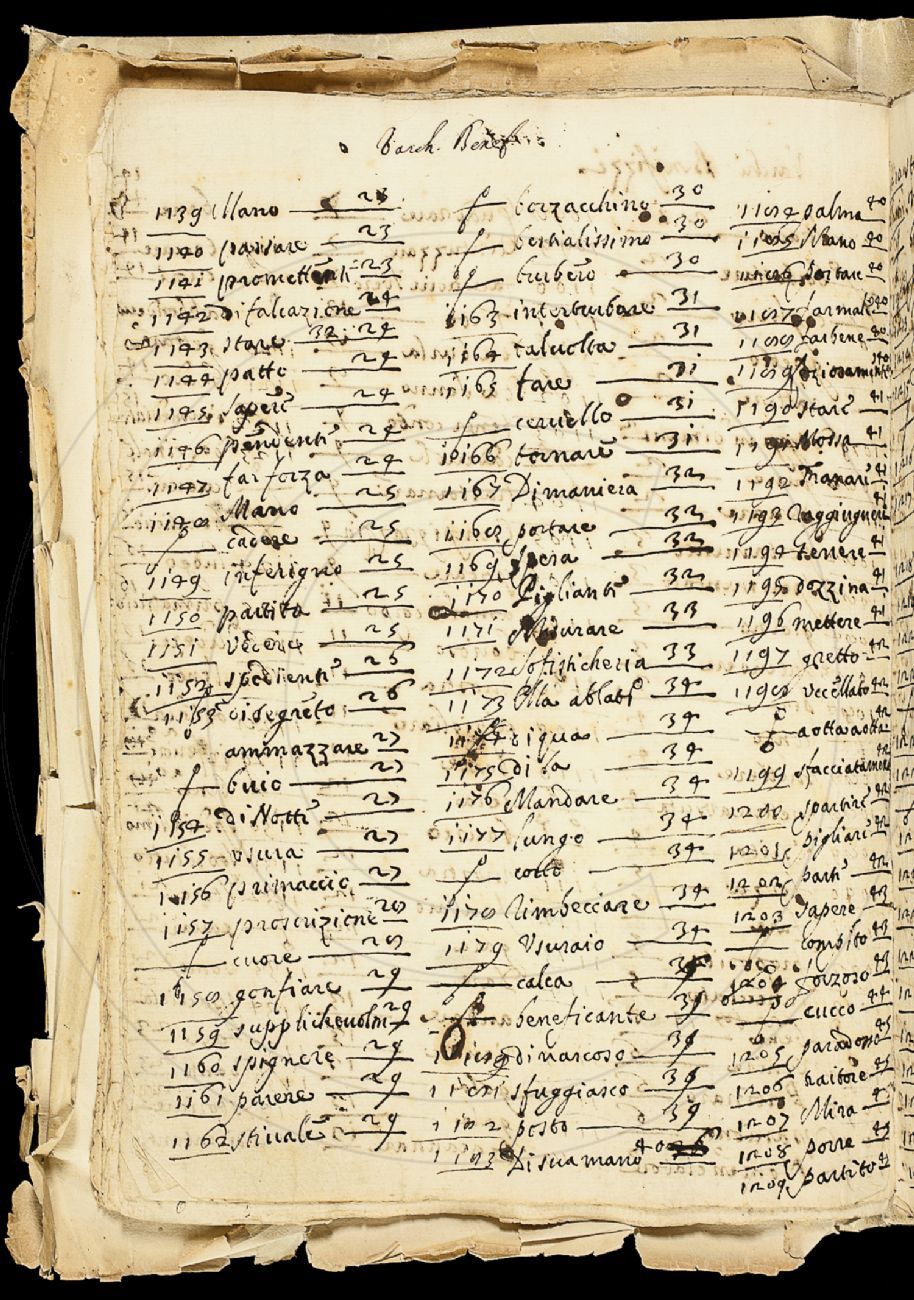 Varch. Benef.
1139 Mano 23
1140 passare 23
1141 promettenti 23
1142 difalcazione 24
1143 stare 32, 24
1144 patto 24
1145 sapere 24
1146 pendenti 24
1147 far forza 24
1148 Mano 25
f cadere 25
1149 inferigno 25
1150 partito 25
1151 25
1152 spedienti 25
1153 di segreto 26
ammazzare 27
f buio 27
1154 di Notte 27
1155 vsura 27
1156 primaccio 27
1157 proscrizione 28
f cuore 28
1158 gonfiare 29
1159 supplichevolm 29
1160 spignere 29
1161 parere 29
1162 stivale 29
f borzacchino 30
f bestialissimo 30
f burbero 30
1163 interturbare 31
1164 talvolta 31
1165 fare 31
f cervello 31
1166 tornare 31
1167 Di maniera 32
1168 portare 32
1169 spera 32
1170 Piglianti 32
1171 Misurare 33
1172 sofisticheria 33
1173 Alla 34
1174 di qua 34
1175 di la 34
1176 Mandare 34
1177 lungo 34
f cotto 34
1178 Rimbeccare 34
1179 Vsuraio 34
f calca
f beneficante 39
1180 di nascoso 39
1181 sfuggiasco 39
1182 posto 39
1183 Di sua mano 40
1184 palma 40
1185 Mano 40
1186 portare 40
1187 40
1188 far bene 40
1189 40
1190 stare 41
1191 Mossa 41
1192 41
1193 Raggiugnere 41
1194 tenere 41
1195 dozzina 41
1196 mettere 41
1197 gretto 42
1198 vccellato 42
a otta a otta 42
1199 sfacciatamente 42
1200 spartire 42
1201 pigliare 42
1202 parti 42
1203 sapere 43
f combito 43
1204 gozzoso 43
f cucco 44
1205 paradosso 45
1206 traitore 45
1207 Mira
1208 porre
1209 partito